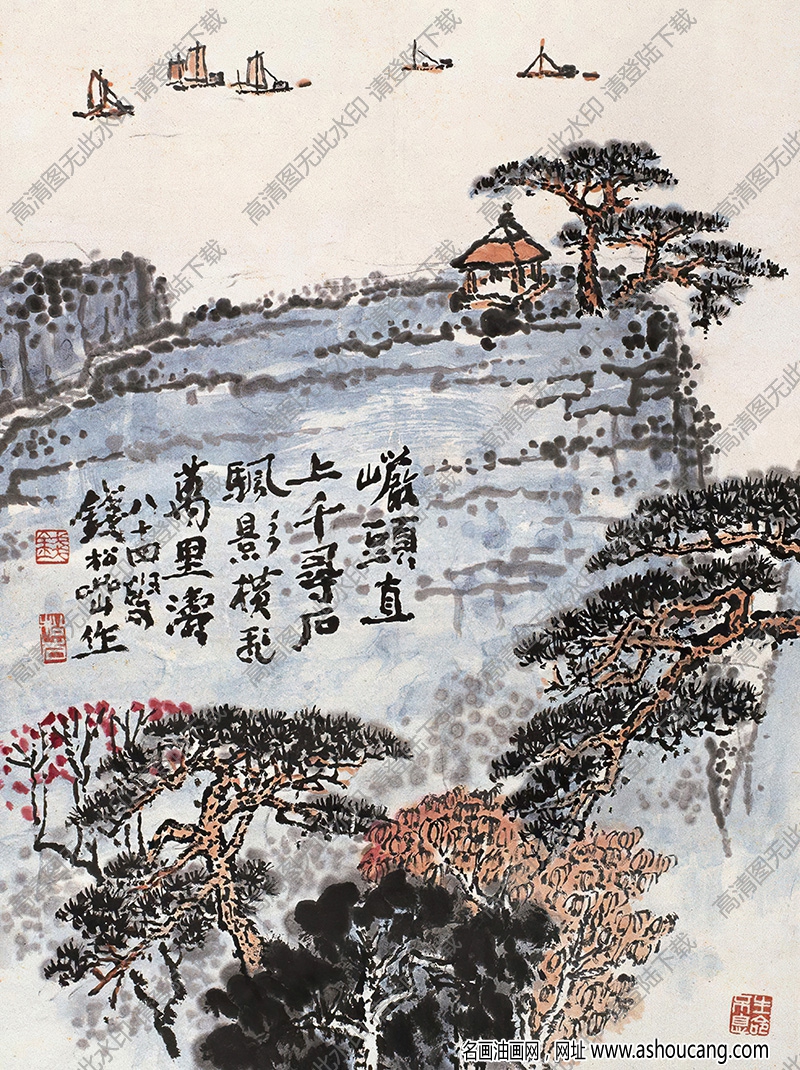 巗頭直
上千尋石
颿影橫飛
萬里濤
八十四叟
錢松喦作
生命不息
高清图无此水印 请登陆下载
名画油画网，网址 www.ashoucang.com